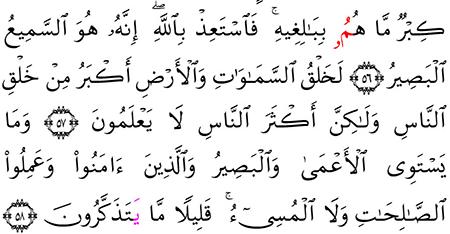 كِبْرٌ مَّا هُمُۥ بِبَٰلِغِيهِ ۚ فَٱسْتَعِذْ بِٱللَّهِ ۖ إِنَّهُۥ هُوَ ٱلسَّمِيعُ
ٱلْبَصِيرُ ۝٥٦ لَخَلْقُ ٱلسَّمَٰوَٰتِ وَٱلْأَرْضِ أَكْبَرُ مِنْ خَلْقِ
ٱلنَّاسِ وَلَٰكِنَّ أَكْثَرَ ٱلنَّاسِ لَا يَعْلَمُونَ ۝٥٧ وَمَا
يَسْتَوِى ٱلْأَعْمَىٰ وَٱلْبَصِيرُ وَٱلَّذِينَ ءَامَنُوا۟ وَعَمِلُوا۟
ٱلصَّٰلِحَٰتِ وَلَا ٱلْمُسِىٓءُ ۚ قَلِيلًا مَّا يَتَذَكَّرُونَ ۝٥٨